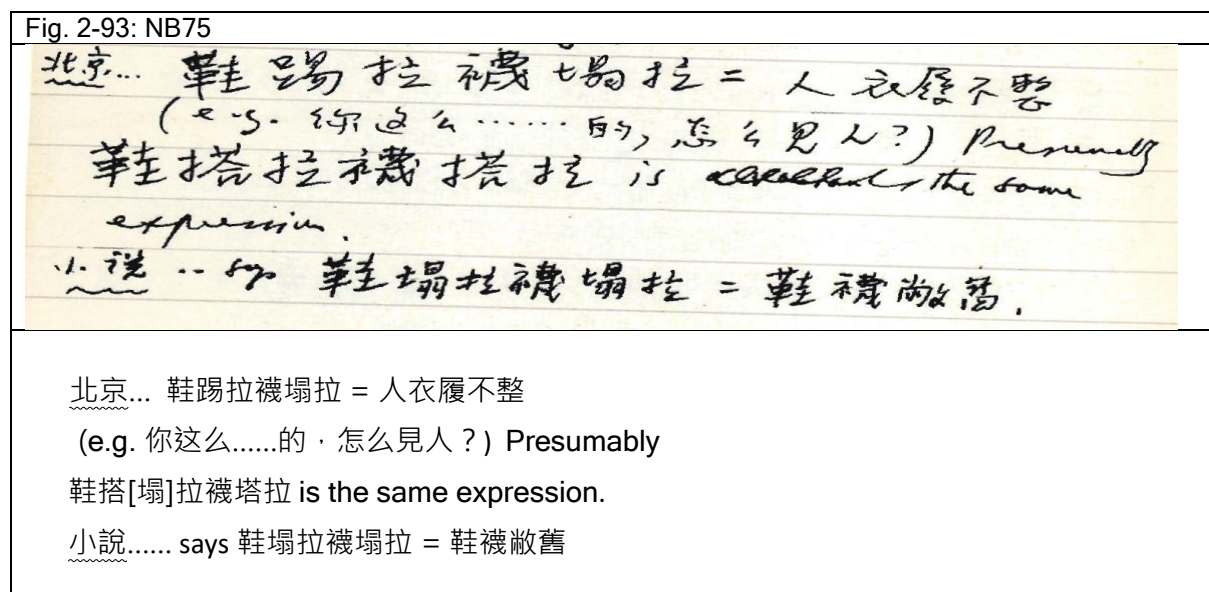 Fig. 2-93: NB75
北京... 鞋踢拉襪塌拉 = 人衣履不整
(e.g. 你这么......的, 怎么見人?) Presumably
鞋搭拉襪搭拉 is the same
expression.
小説 .. says 鞋塌拉襪塌拉 = 鞋襪敝舊.
北京... 鞋踢拉襪塌拉 = 人衣履不整
(e.g. 你这么......的,怎么見人?) Presumably
鞋搭[塌]拉襪塔拉 is the same expression.
小說...... says 鞋塌拉襪塌拉 = 鞋襪敝舊